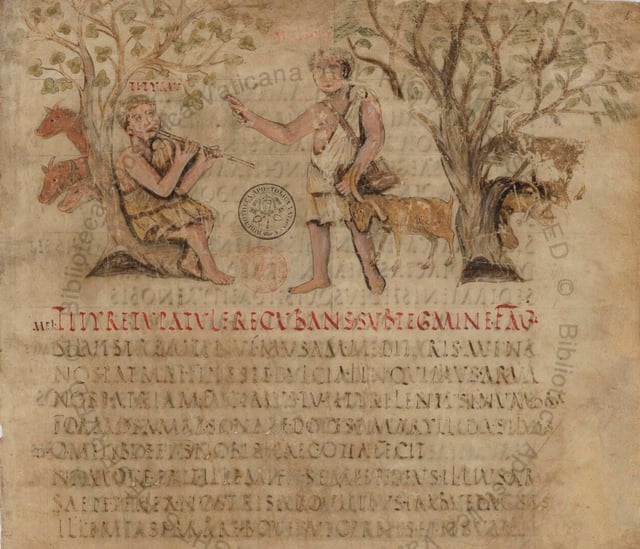 TITYRUS
MEL TITYRE TU PATULE RECUBANS SUB TEGMINE FAGI
SILVESTREM TENUI MUSAM MEDITARIS AVENA
NOS PATRIAE FINIS ET DULCIA LINQUIMUS ARVA
NOS PATRIAM FUGIMUS TU TITYRE LENTUS IN UMBRA
FORMOSAM RESONARE DOCES AMARYLLIDA SILVAS
O MELIBOEE DEUS NOBIS HAEC OTIA FECIT
NAMQUE ERIT ILLE MIHI SEMPER DEUS ILLIUS ARAM
SAEPE TENER NOSTRIS AB OVILIBUS IMBUET AGNUS
ILLE MEAS ERRARE BOVES UT CERNIS ET IPSUM
Biblioteca Apostolica Vaticana